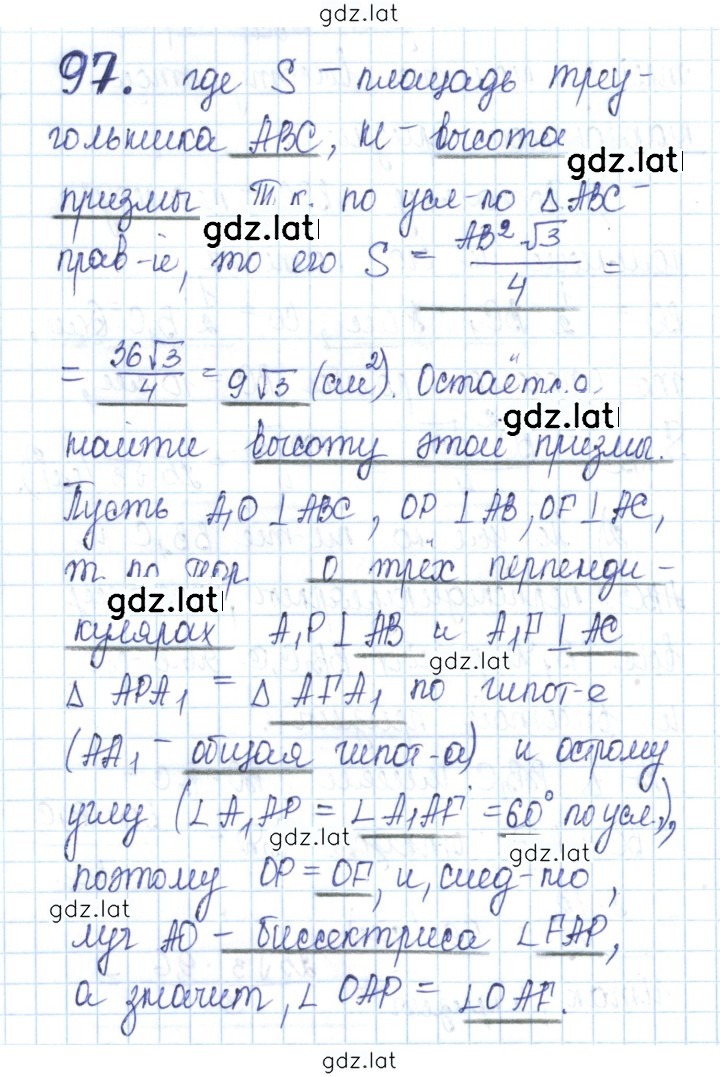 gdz.lat
97. где S – площадь треу-
гольника ABC, н – высота
gdz.lat
призмы Т.к. по усл-ю ΔABC –
gdz.lat
прав-й, то его S = AB² √3 / 4 =
= 36√3 / 4 = 9√3 (см²). Остаётся
gdz.lat
найти высоту этой призмы.
Пусть A₁O ⊥ ABC, OP ⊥ AB, OF ⊥ AC,
т. по теор. о трёх перпенди-
gdz.lat
кулярах A₁P ⊥ AB и A₁F ⊥ AC
gdz.lat
Δ APA₁ = Δ AFA₁ по гипот-е
(AA₁ – общая гипот-а) и острому
углу (∠A₁AP = ∠A₁AF = 60° по усл.),
gdz.lat
gdz.lat
поэтому OP = OF, и, след-но,
gdz.lat
луч AO – биссектриса ∠FAP,
а значит, ∠OAP = ∠OAF.
gdz.lat